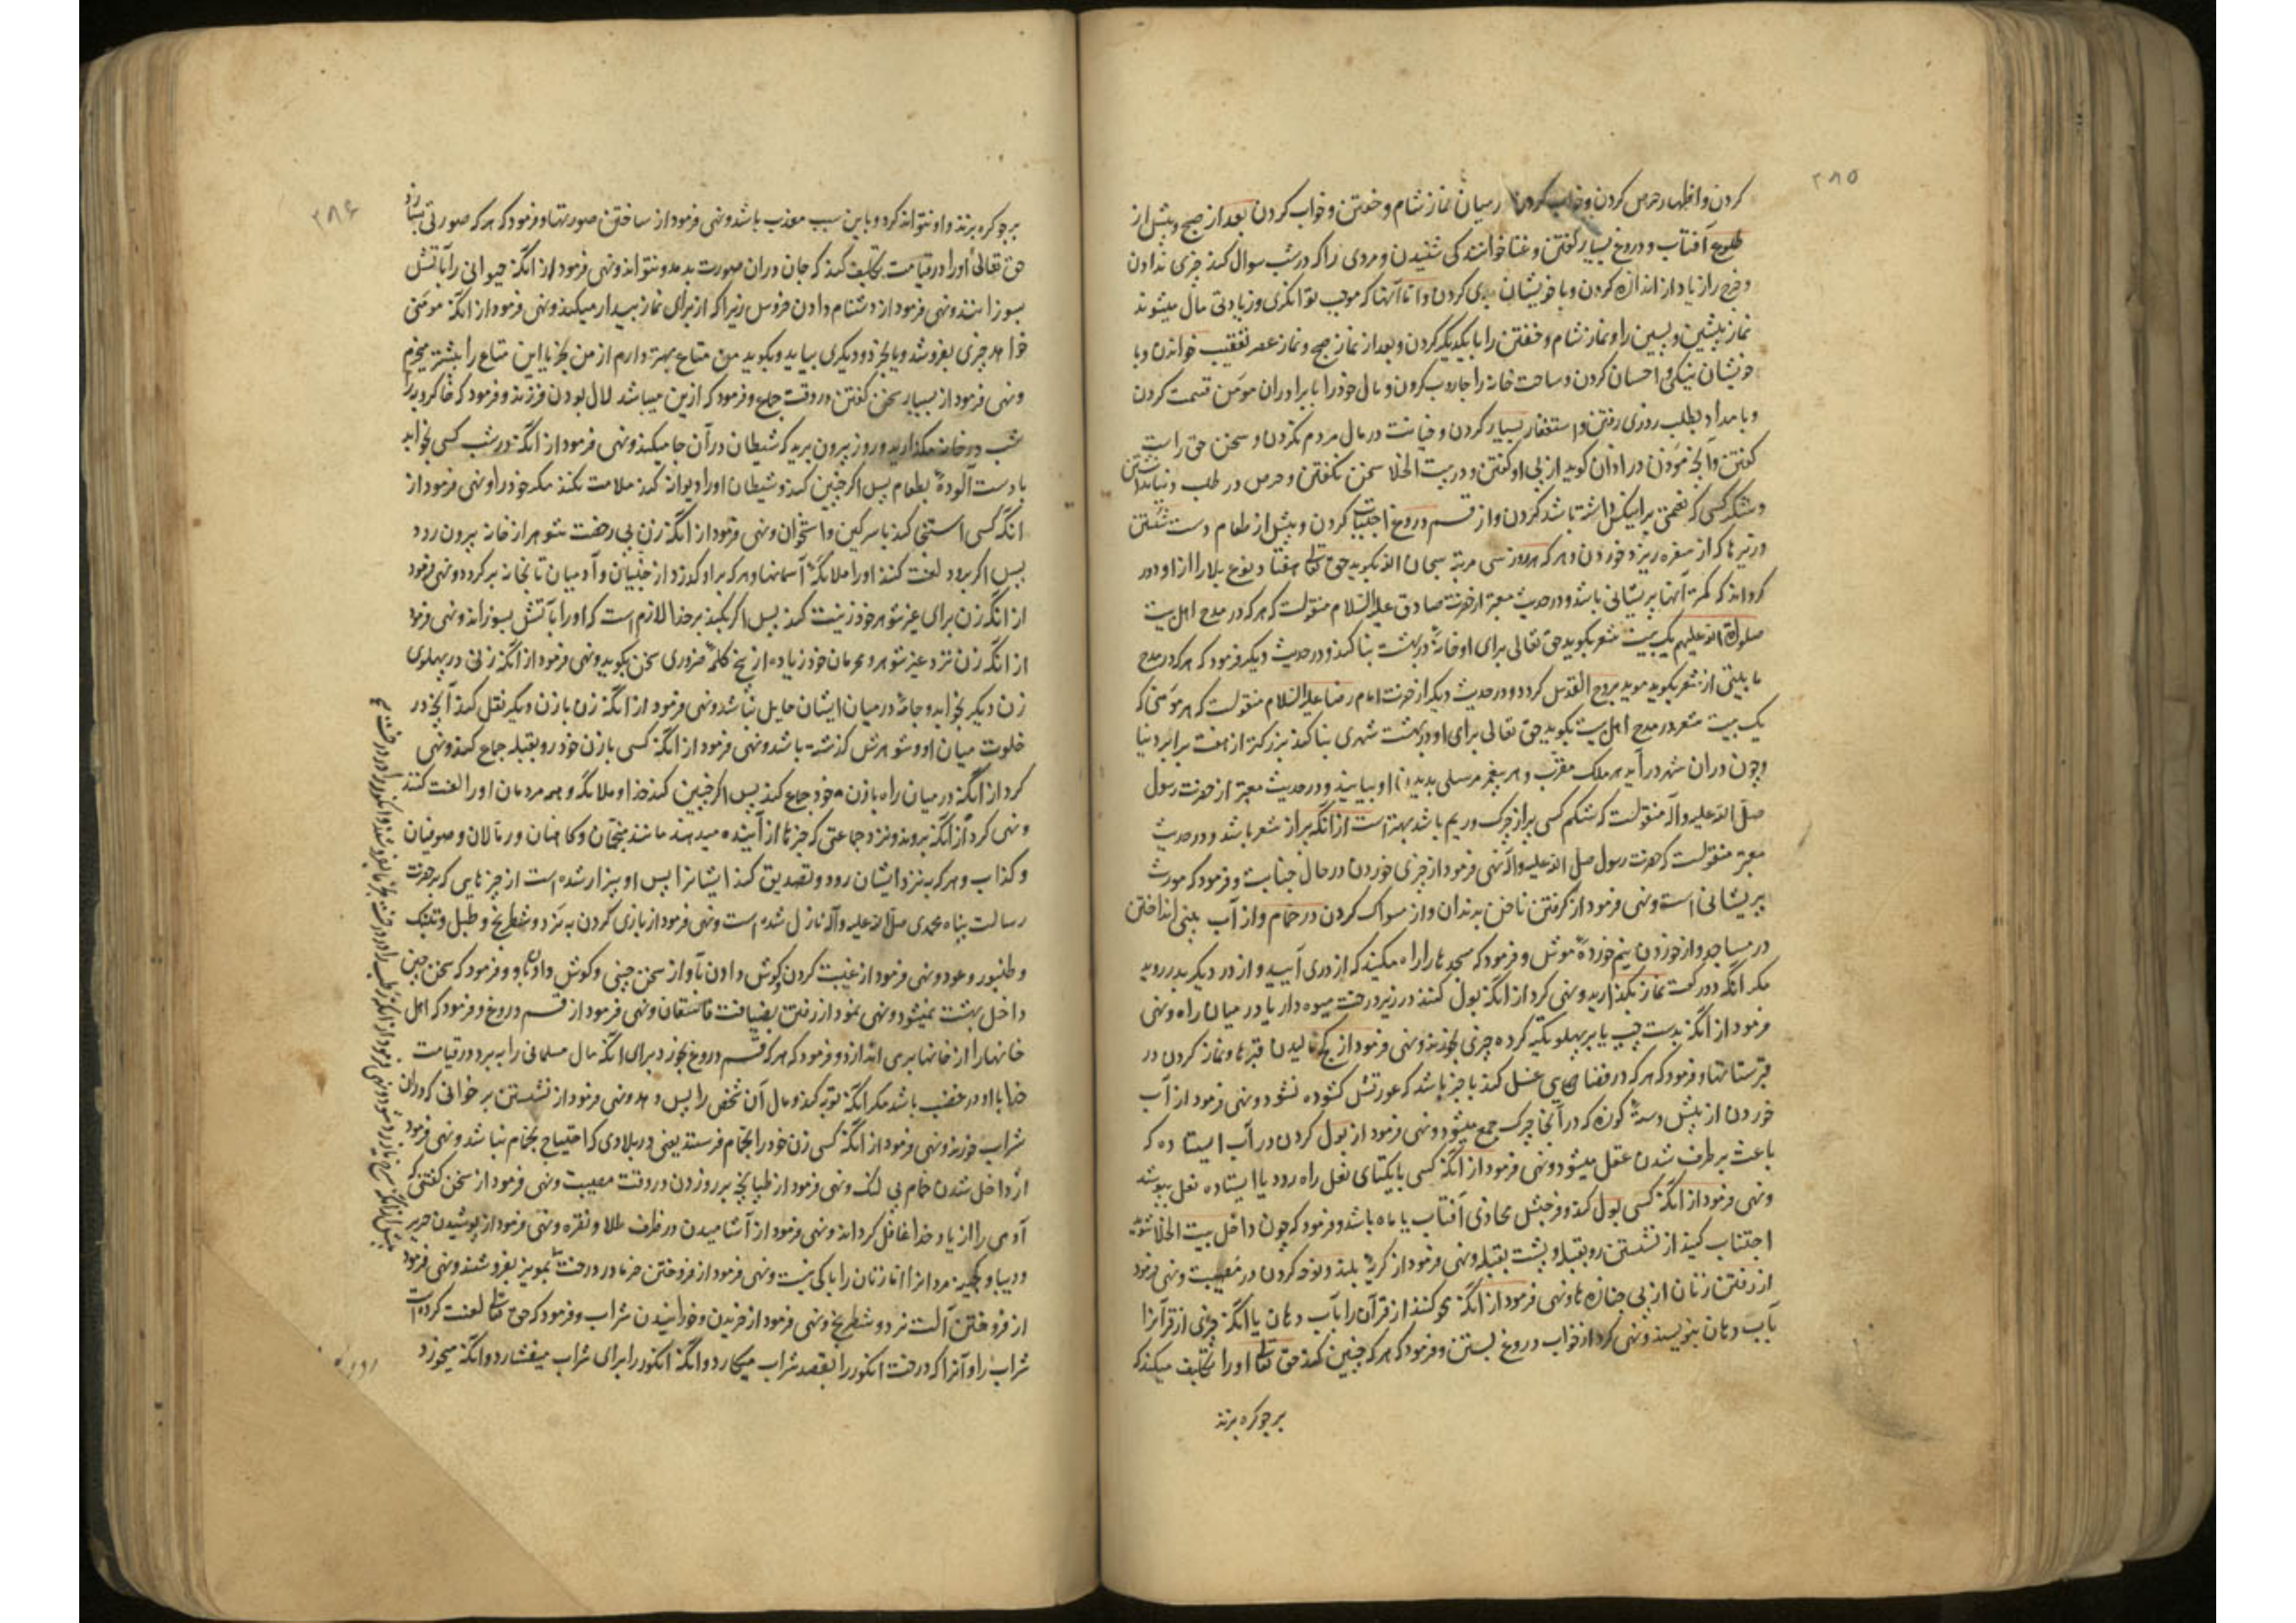 ۲۸۵
کردن و اظهار حرص کردن و خواب کردن میان نماز شام و خفتن و خواب کردن بعد از صبح و پیش از
طلوع آفتاب و دروغ بسیار گفتن و غنا خوانندگی شنیدن و مردی را که در شب سوال کند چیزی ندادن
و خرج را زیاد از اندازه کردن و با خویشان بدی کردن و اما آنها که موجب توانگری و زیادتی مال میشوند
نماز پیشین و پسین را و نماز شام و خفتن را با یکدیگر کردن و بعد از نماز صبح و نماز عصر تعقیب خواندن و با
خویشان نیکی و احسان کردن و ساحت خانه را جاروب کردن و مال خود را با برادران مومن قسمت کردن
و بامداد بطلب روزی رفتن و استغفار بسیار کردن و خیانت در مال مردم نکردن و سخن حق راست
گفتن و آنچه موذن در اذان گوید از پی او گفتن و در بیت الخلا سخن نگفتن و حرص در طلب دنیا نداشتن
و شکر کسی که نعمتی بر این کس داشته باشد کردن و از قسم دروغ اجتناب کردن و پیش از طعام دست شستن
و ریزها که از سفره ریزد خوردن و هر که هر روز سی مرتبه سبحان الله بگوید حق تعالی هفتاد نوع بلا را از او دور
گرداند که کمتر آنها پریشانی باشد و در حدیث معتبر از حضرت صادق علیه السلام منقولست که هر که در مدح اهل بیت
صلوات الله علیهم یک بیت شعر بگوید حق تعالی برای او خانهٔ در بهشت بنا کند و در حدیث دیگر فرمود که هر که در مدح
ما بیتی از شعر بگوید موید بروح القدس گردد و در حدیث دیگر از حضرت امام رضا علیه السلام منقولست که هر مومنی که
یک بیت شعر در مدح اهل بیت بگوید حق تعالی برای او در بهشت شهری بنا کند بزرگتر از هفت برابر دنیا
و چون در ان شهر درآید هر ملک مقرب و هر پیغمبر مرسلی بدیدن او بیایند و در حدیث معتبر از حضرت رسول
صلی الله علیه و آله منقولست که شکم کسی پر از چرک و ریم باشد بهتر است از انکه پر از شعر باشد و در حدیث
معتبر منقولست که حضرت رسول صلی الله علیه و آله نهی فرمود از چیزی خوردن در حال جنابت و فرمود که مورث
پریشانی است و نهی فرمود از گرفتن ناخن بدندان و از مسواک کردن در حمام و از آب بینی انداختن
در مساجد و از خوردن نیم خوردهٔ موش و فرمود که مسجدها را راه مکنید که از دری آیید و از در دیگر بدر روید
مگر انکه دو رکعت نماز بگذارید و نهی کرد از انکه بول کنند در زیر درخت میوه دار یا در میان راه و نهی
فرمود از انکه بدست چپ یا بر پهلو تکیه کرده چیزی بخورند و نهی فرمود از گچ مالیدن قبرها و نماز کردن در
قبرستانها و فرمود که هر که در فضای غسل کند با خبر باشد که عورتش گشوده نشود و نهی فرمود از آب
خوردن از پیش دستهٔ کوزه که در آنجا چرک جمع میشود و نهی فرمود از بول کردن در آب ایستاده که
باعث برطرف شدن عقل میشود و نهی فرمود از انکه کسی با یکتای نعل راه رود یا ایستاده نعل بپوشد
و نهی فرمود از انکه کسی بول کند و فرجش محاذی آفتاب یا ماه باشد و فرمود که چون داخل بیت الخلا شوید
اجتناب کنید از نشستن رو بقبله و پشت بقبله و نهی فرمود از گریهٔ بلند و نوحه کردن در مصیبت و نهی فرمود
از رفتن زنان از پی جنازه ها و نهی فرمود از انکه محو کنند از قرآن را بآب دهان یا انکه چیزی از قرآنرا
بآب دهان بنویسند و نهی کرد از خواب دروغ بستن و فرمود که هر که چنین کند حق تعالی او را تکلیف میکند که
بر جو گره بزند
۲۸۶
بر جو گره بزند و او نتواند کرد و باین سبب معذب باشد و نهی فرمود از ساختن صورتها و فرمود که هر که صورتی بسازد
حق تعالی او را در قیامت تکلیف کند که جان دران صورت بدمد و نتواند و نهی فرمود از انکه حیوانی را بآتش
بسوزانند و نهی فرمود از دشنام دادن خروس زیرا که از برای نماز بیدار میکند و نهی فرمود از انکه مومنی
خواهد چیزی بفروشد و یا بخرد و دیگری بیاید و بگوید من متاع بهتر دارم از من بخر یا این متاع را بیشتر میخرم
و نهی فرمود از بسیار سخن گفتن در وقت جماع و فرمود که ازین میباشد لال بودن فرزند و فرمود که خاکروبه را
شب در خانه مگذارید و روز بیرون برید که شیطان در آن جا میکند و نهی فرمود از انکه در شب کسی بخوابد
با دست آلوده بطعام پس اگر چنین کند و شیطان او را دیوانه کند ملامت نکند مگر خود را و نهی فرمود از
انکه کسی استنجا کند با سرگین و استخوان و نهی فرمود از انکه زن بی رخصت شوهر از خانه بیرون رود
پس اگر برود لعنت کنند او را ملائکهٔ آسمانها و هر که بر او گذرد از جنیان و آدمیان تا بخانه برگردد و نهی فرمود
از انکه زن برای غیر شوهر خود زینت کند پس اگر بکند بر خدا لازم است که او را بآتش بسوزاند و نهی فرمود
از انکه زن نزد غیر شوهر و محرمان خود زیاده از پنج کلمهٔ ضروری سخن بگوید و نهی فرمود از انکه زنی در پهلوی
زن دیگر بخوابد و جامهٔ در میان ایشان حایل نباشد و نهی فرمود از انکه زن با زن دیگر نقل کند آنچه در
خلوت میان او و شوهرش گذشته باشد و نهی فرمود از انکه کسی با زن خود رو بقبله جماع کند و نهی
کرد از انکه در میان راه با زن خود جماع کند پس اگر چنین کند خدا و ملائکه و همه مردمان او را لعنت کنند
و نهی کرد از انکه بروند نزد جماعتی که خبرها از آینده میدهند مانند منجمان و کاهنان و رمالان و صوفیان
و کذاب و هر که به نزد ایشان رود و تصدیق کند ایشانرا پس او بیزار شده است از چیزهایی که بر حضرت
رسالت پناه محمدی صلی الله علیه و آله نازل شده است و نهی فرمود از بازی کردن به نرد و شطرنج و طبل و تنبک
و طنبور و عود و نهی فرمود از غیبت کردن و گوش دادن بآو از سخن چینی و گوش دادن باو و فرمود که سخن چین
داخل بهشت نمیشود و نهی نمود از رفتن بضیافت فاسقان و نهی فرمود از قسم دروغ و فرمود که اهل
خانها را از خانها برمی اندازد و فرمود که هر که قسم دروغ بخورد برای انکه مال مسلمانی را به برد در قیامت
خدا با او در غضب باشد مگر انکه توبه کند و مال آن شخص را پس دهد و نهی فرمود از نشستن بر خوانی که در ان
شراب خورند و نهی فرمود از انکه کسی زن خود را بحمام فرستد یعنی در بلادی که احتیاج بحمام نباشد و نهی فرمود
از داخل شدن حمام بی لنگ و نهی فرمود از طپانچه بر رو زدن در وقت مصیبت و نهی فرمود از سخن گفتنی که
آدمی را از یاد خدا غافل گرداند و نهی فرمود از آشامیدن در ظرف طلا و نقره و نهی فرمود از پوشیدن حریر
و دیبا مردانرا اما زنان را باکی نیست و نهی فرمود از فروختن خرما در درخت بمویز بفروشند و نهی فرمود
از فروختن آلت نرد و شطرنج و نهی فرمود از خریدن و خورانیدن شراب و فرمود که حق تعالی لعنت کرده است
شراب را و آنرا که درخت انگور را بقصد شراب میکارد و انکه انگور را برای شراب میفشارد و انکه میخورد